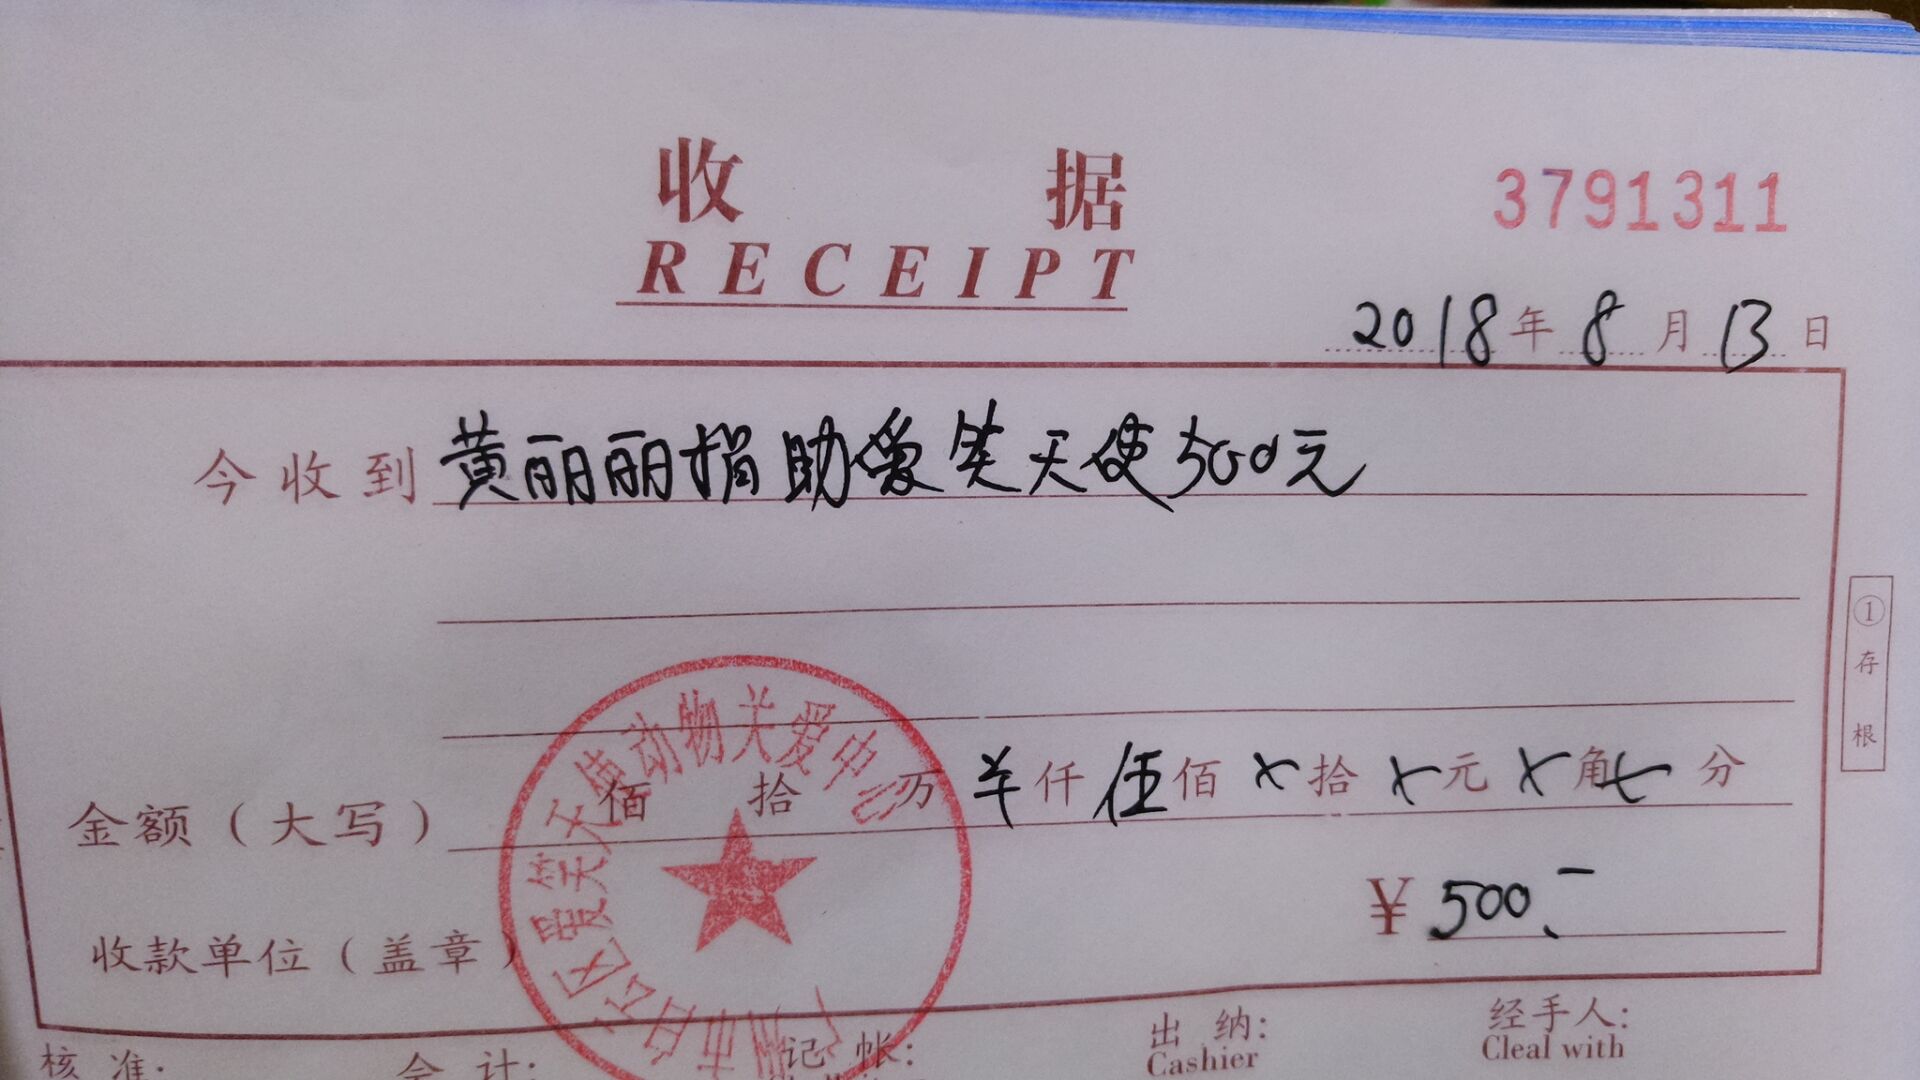 收据
RECEIPT
3791311
2018年8月13日
今收到黄丽丽捐助爱笑天使500元
①存根
金额（大写） 佰 拾 万 羊仟伍佰×拾×元×角×分
¥500.-
收款单位（盖章）
广州市白云区爱笑天使动物关爱中心
核 准:
会 计:
记 帐:
出 纳:
Cashier
经手人:
Cleal with